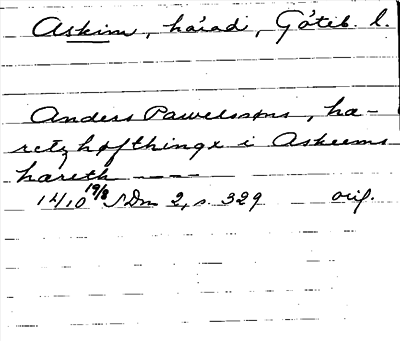 Askim, härad, Göteb. l.
Anders Pawelssons, ha-
retzhøfthinge i Askeems
hareth ----
1410 19/8 SDm 2, s. 329 orig.